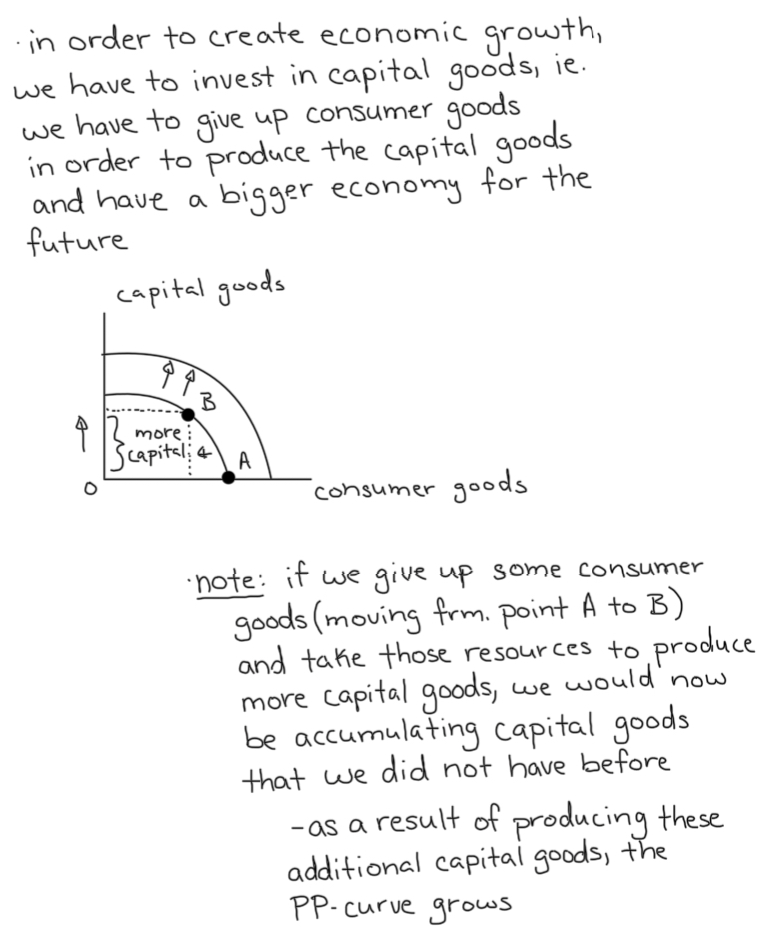 · in order to create economic growth,
we have to invest in capital goods, ie.
we have to give up consumer goods
in order to produce the capital goods
and have a bigger economy for the
future
capital goods
B
more
capital
A
0
consumer goods
· note: if we give up some consumer
goods (moving frm. point A to B)
and take those resources to produce
more capital goods, we would now
be accumulating capital goods
that we did not have before
- as a result of producing these
additional capital goods, the
PP-curve grows